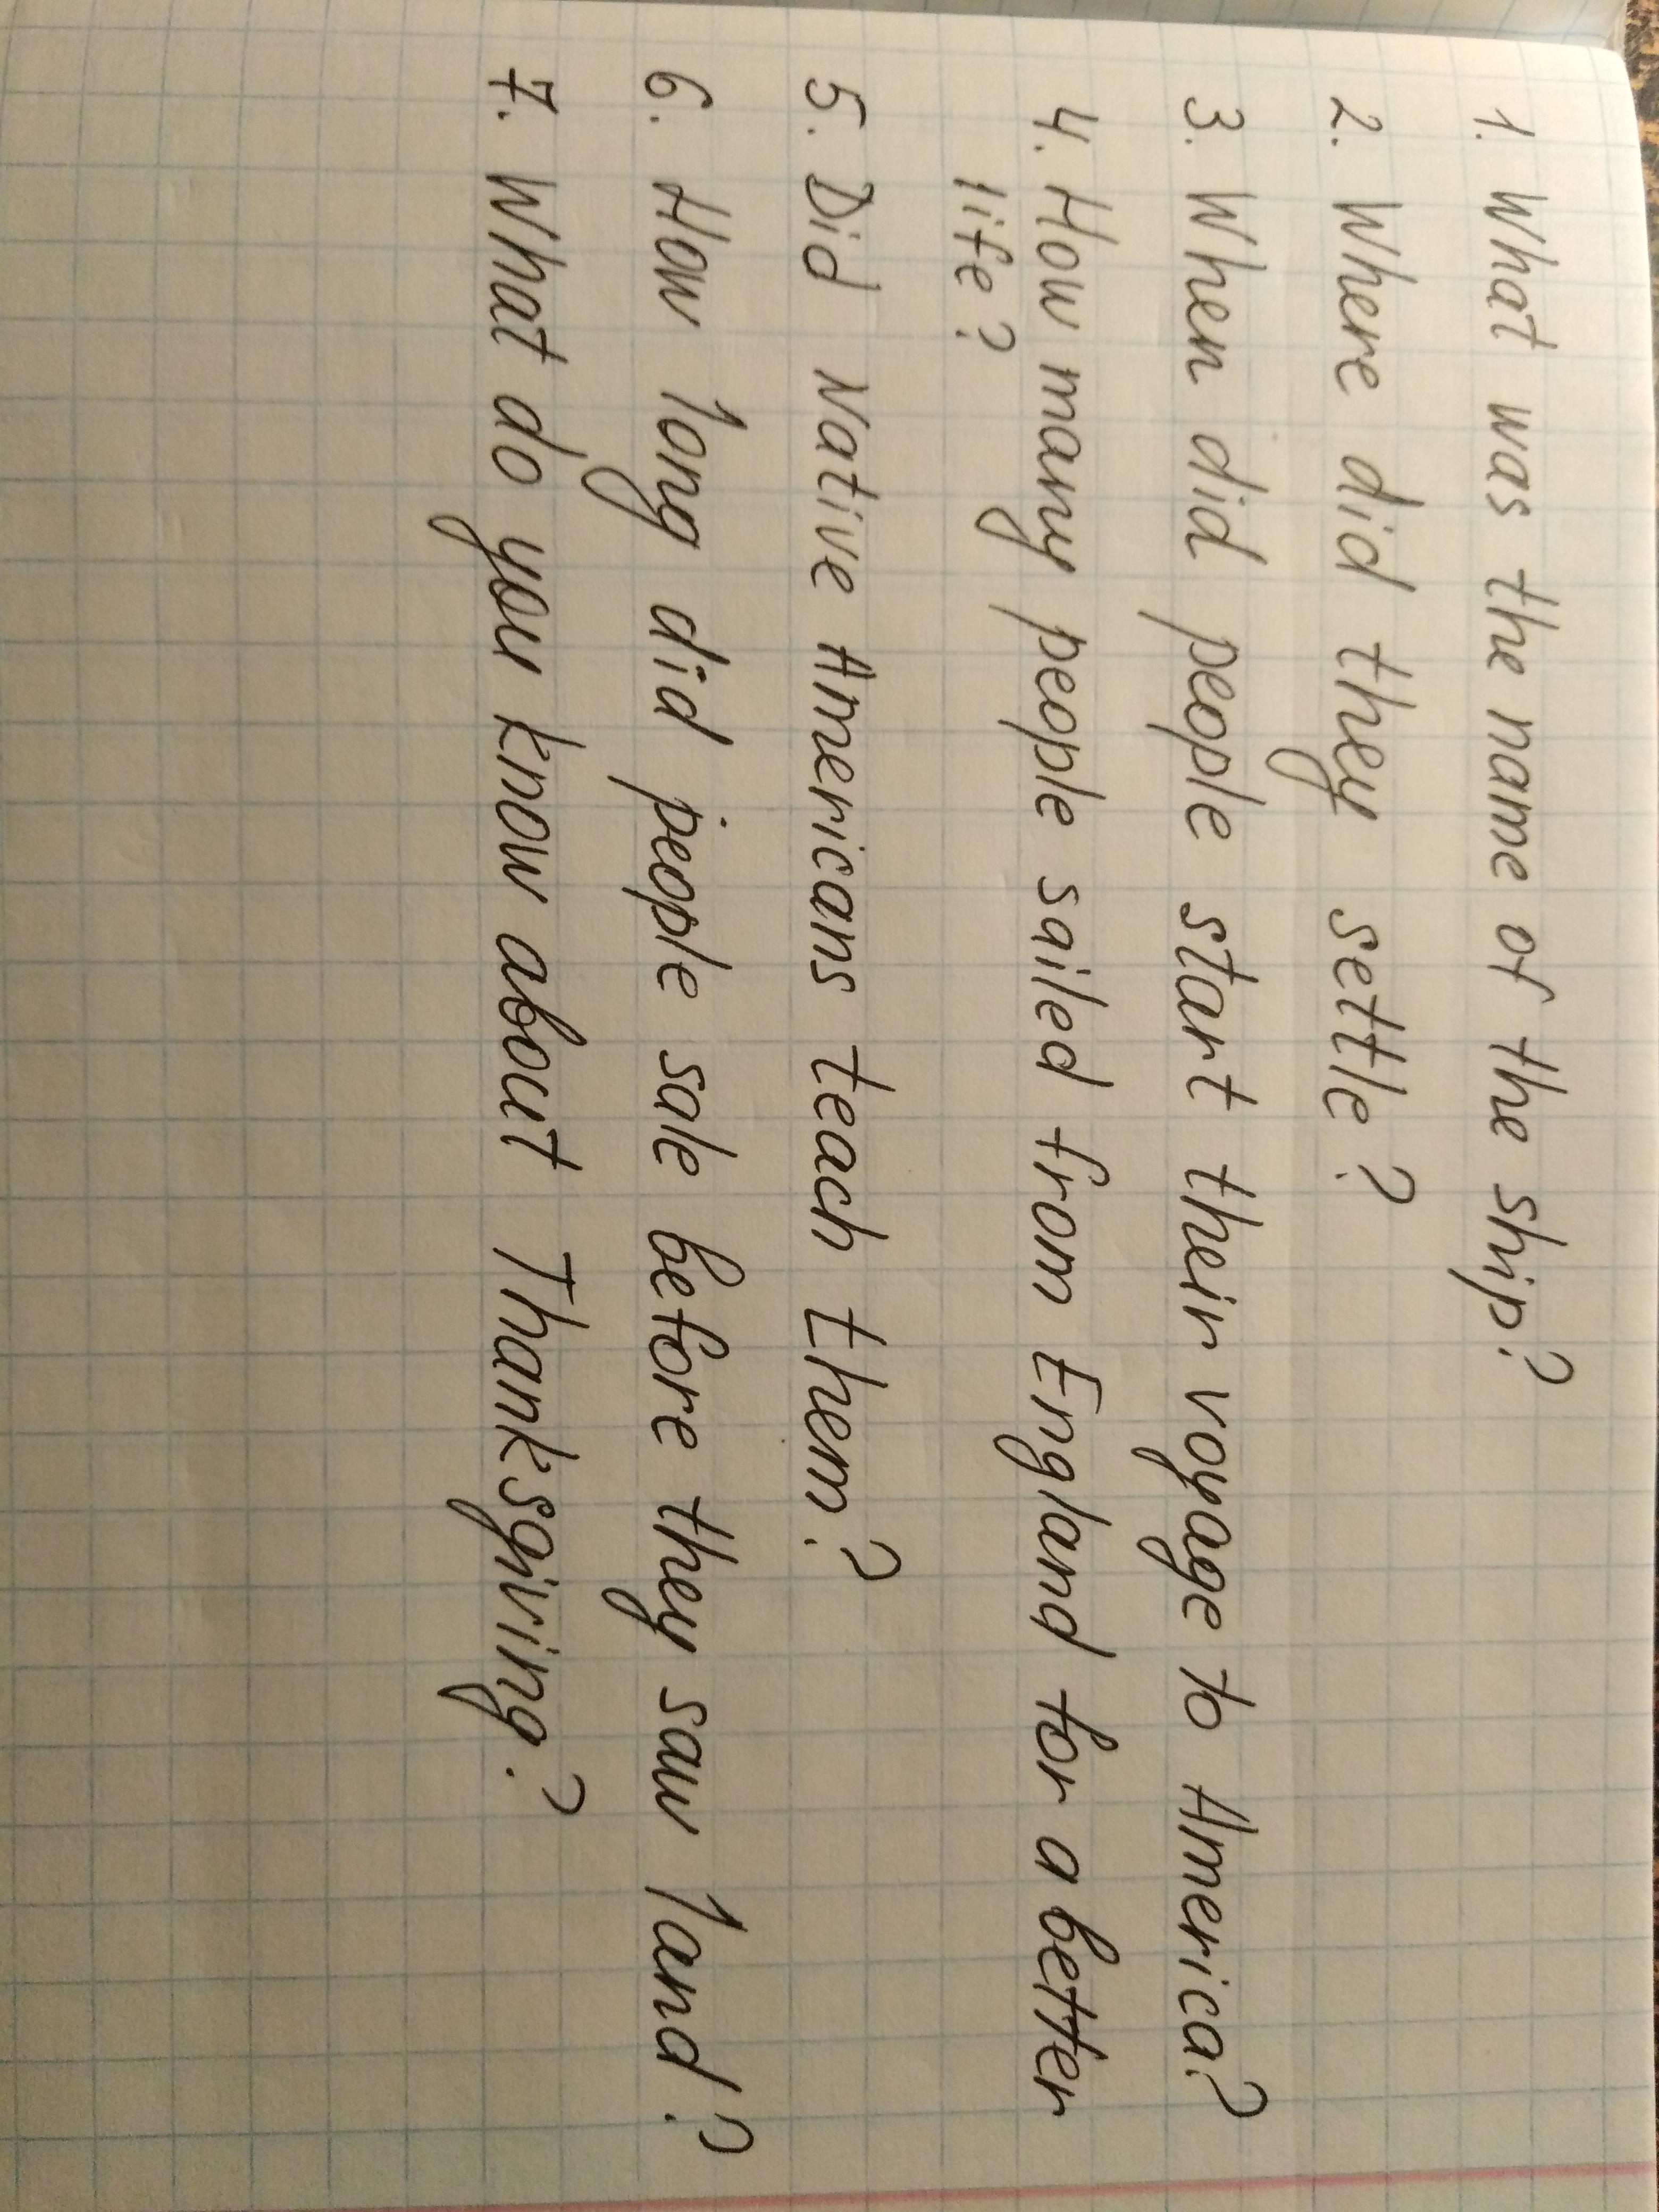 1. What was the name of the ship?
2. Where did they settle?
3. When did people start their voyage to America?
4. How many people sailed from England for a better
life?
5. Did Native Americans teach them?
6. How long did people sale before they saw land?
7. What do you know about Thanksgiving?